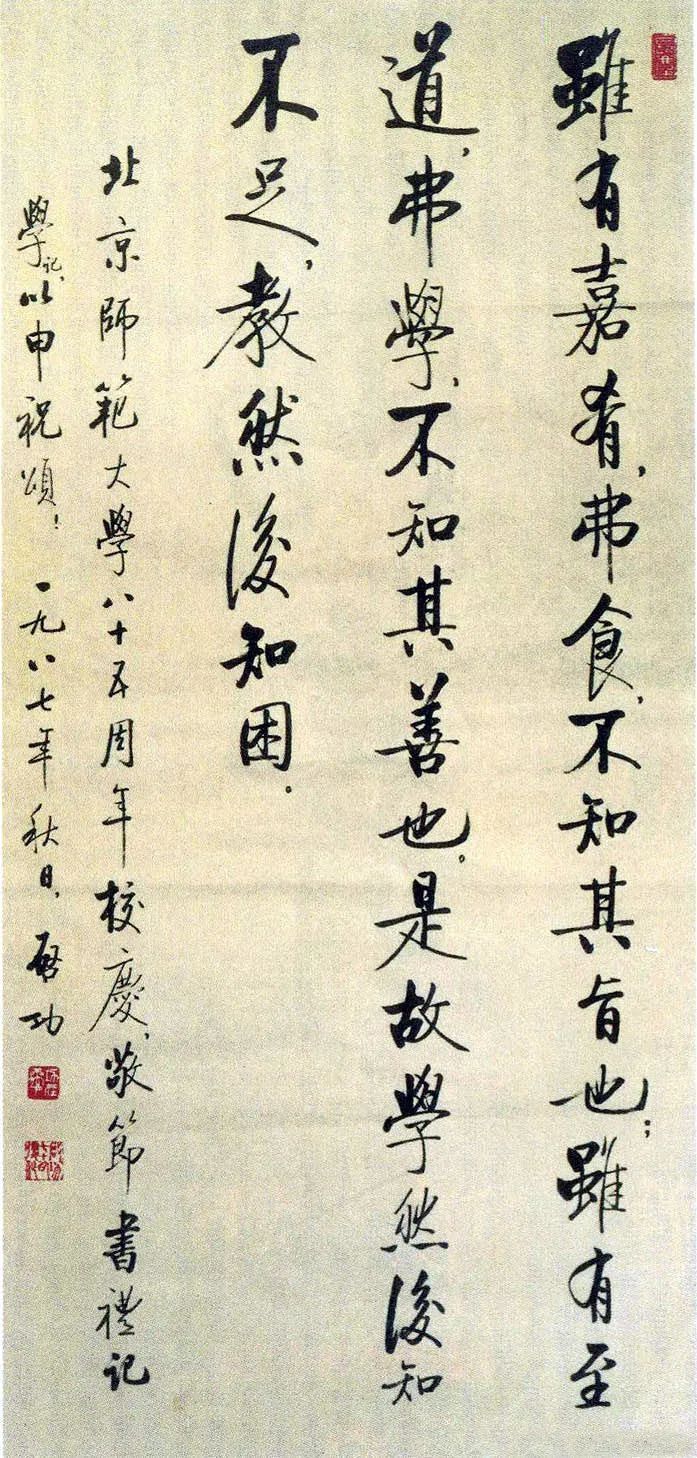 雖有嘉肴，弗食，不知其旨也；雖有至
道，弗學，不知其善也，是故學然後知
不足，教然後知困．
北京師範大學八十五周年校慶，敬節書禮記
學記，以申祝頌！一九八七年秋日，啓功